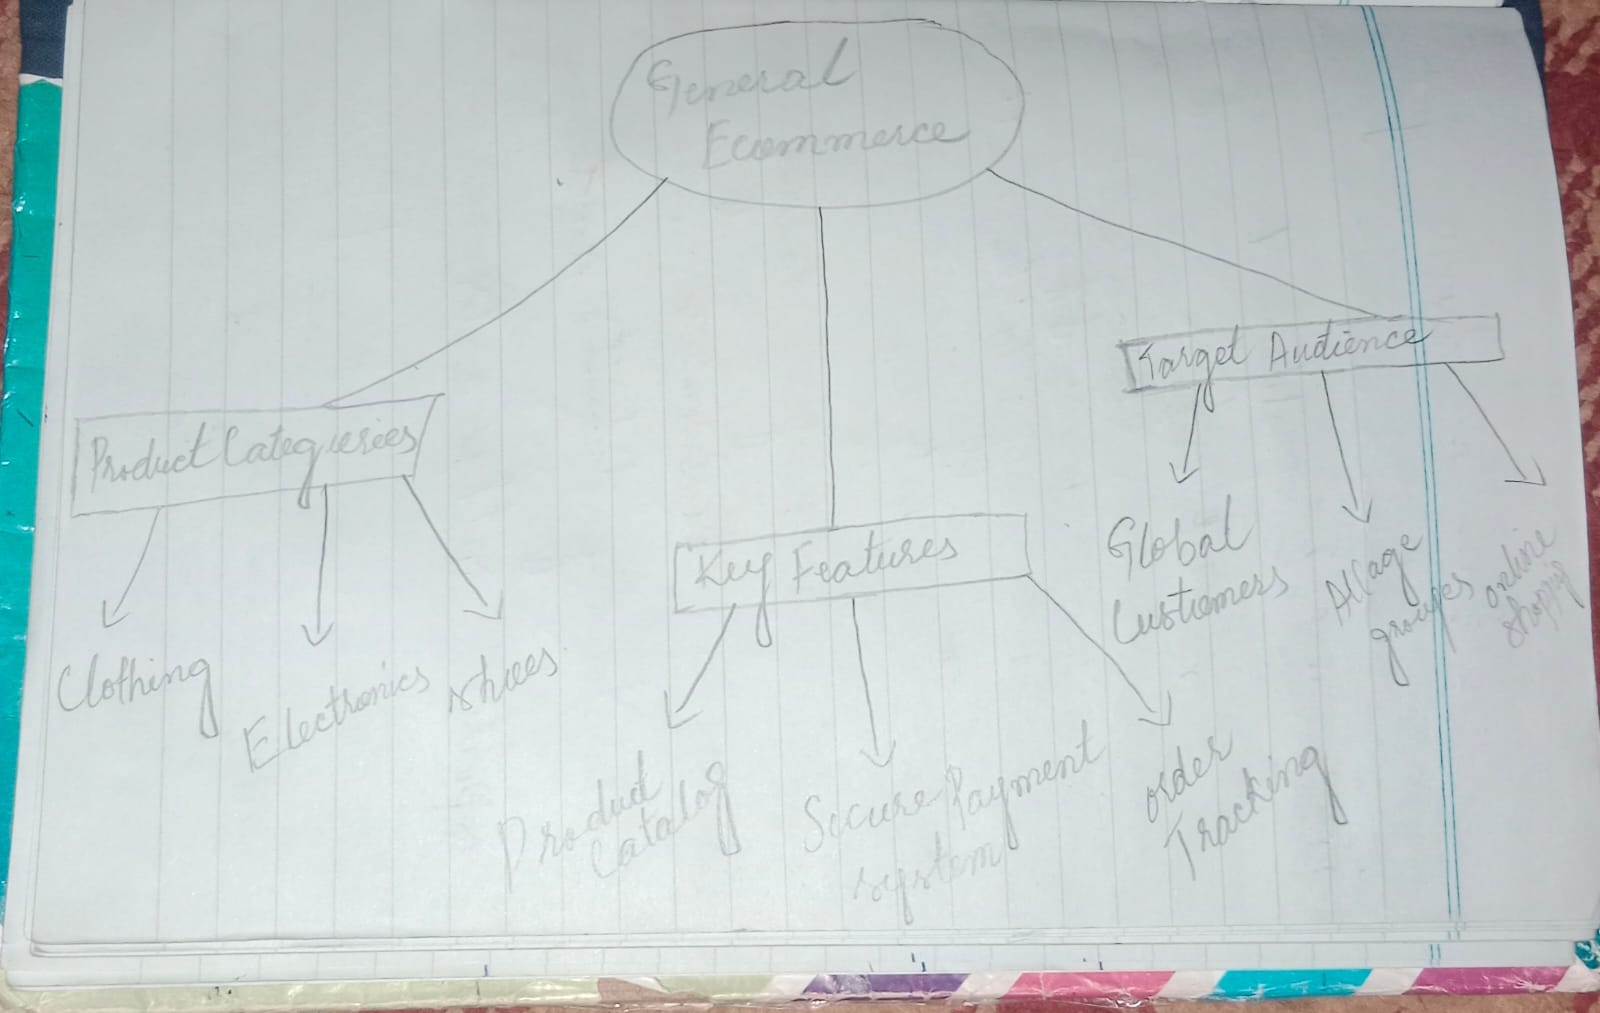 General
Ecommerce
Product Categories
Clothing
Electronics
shoes
Key Features
Product
Catalog
Secure Payment
system
order
Tracking
Target Audience
Global
Customers
All age
groups
online
shopping